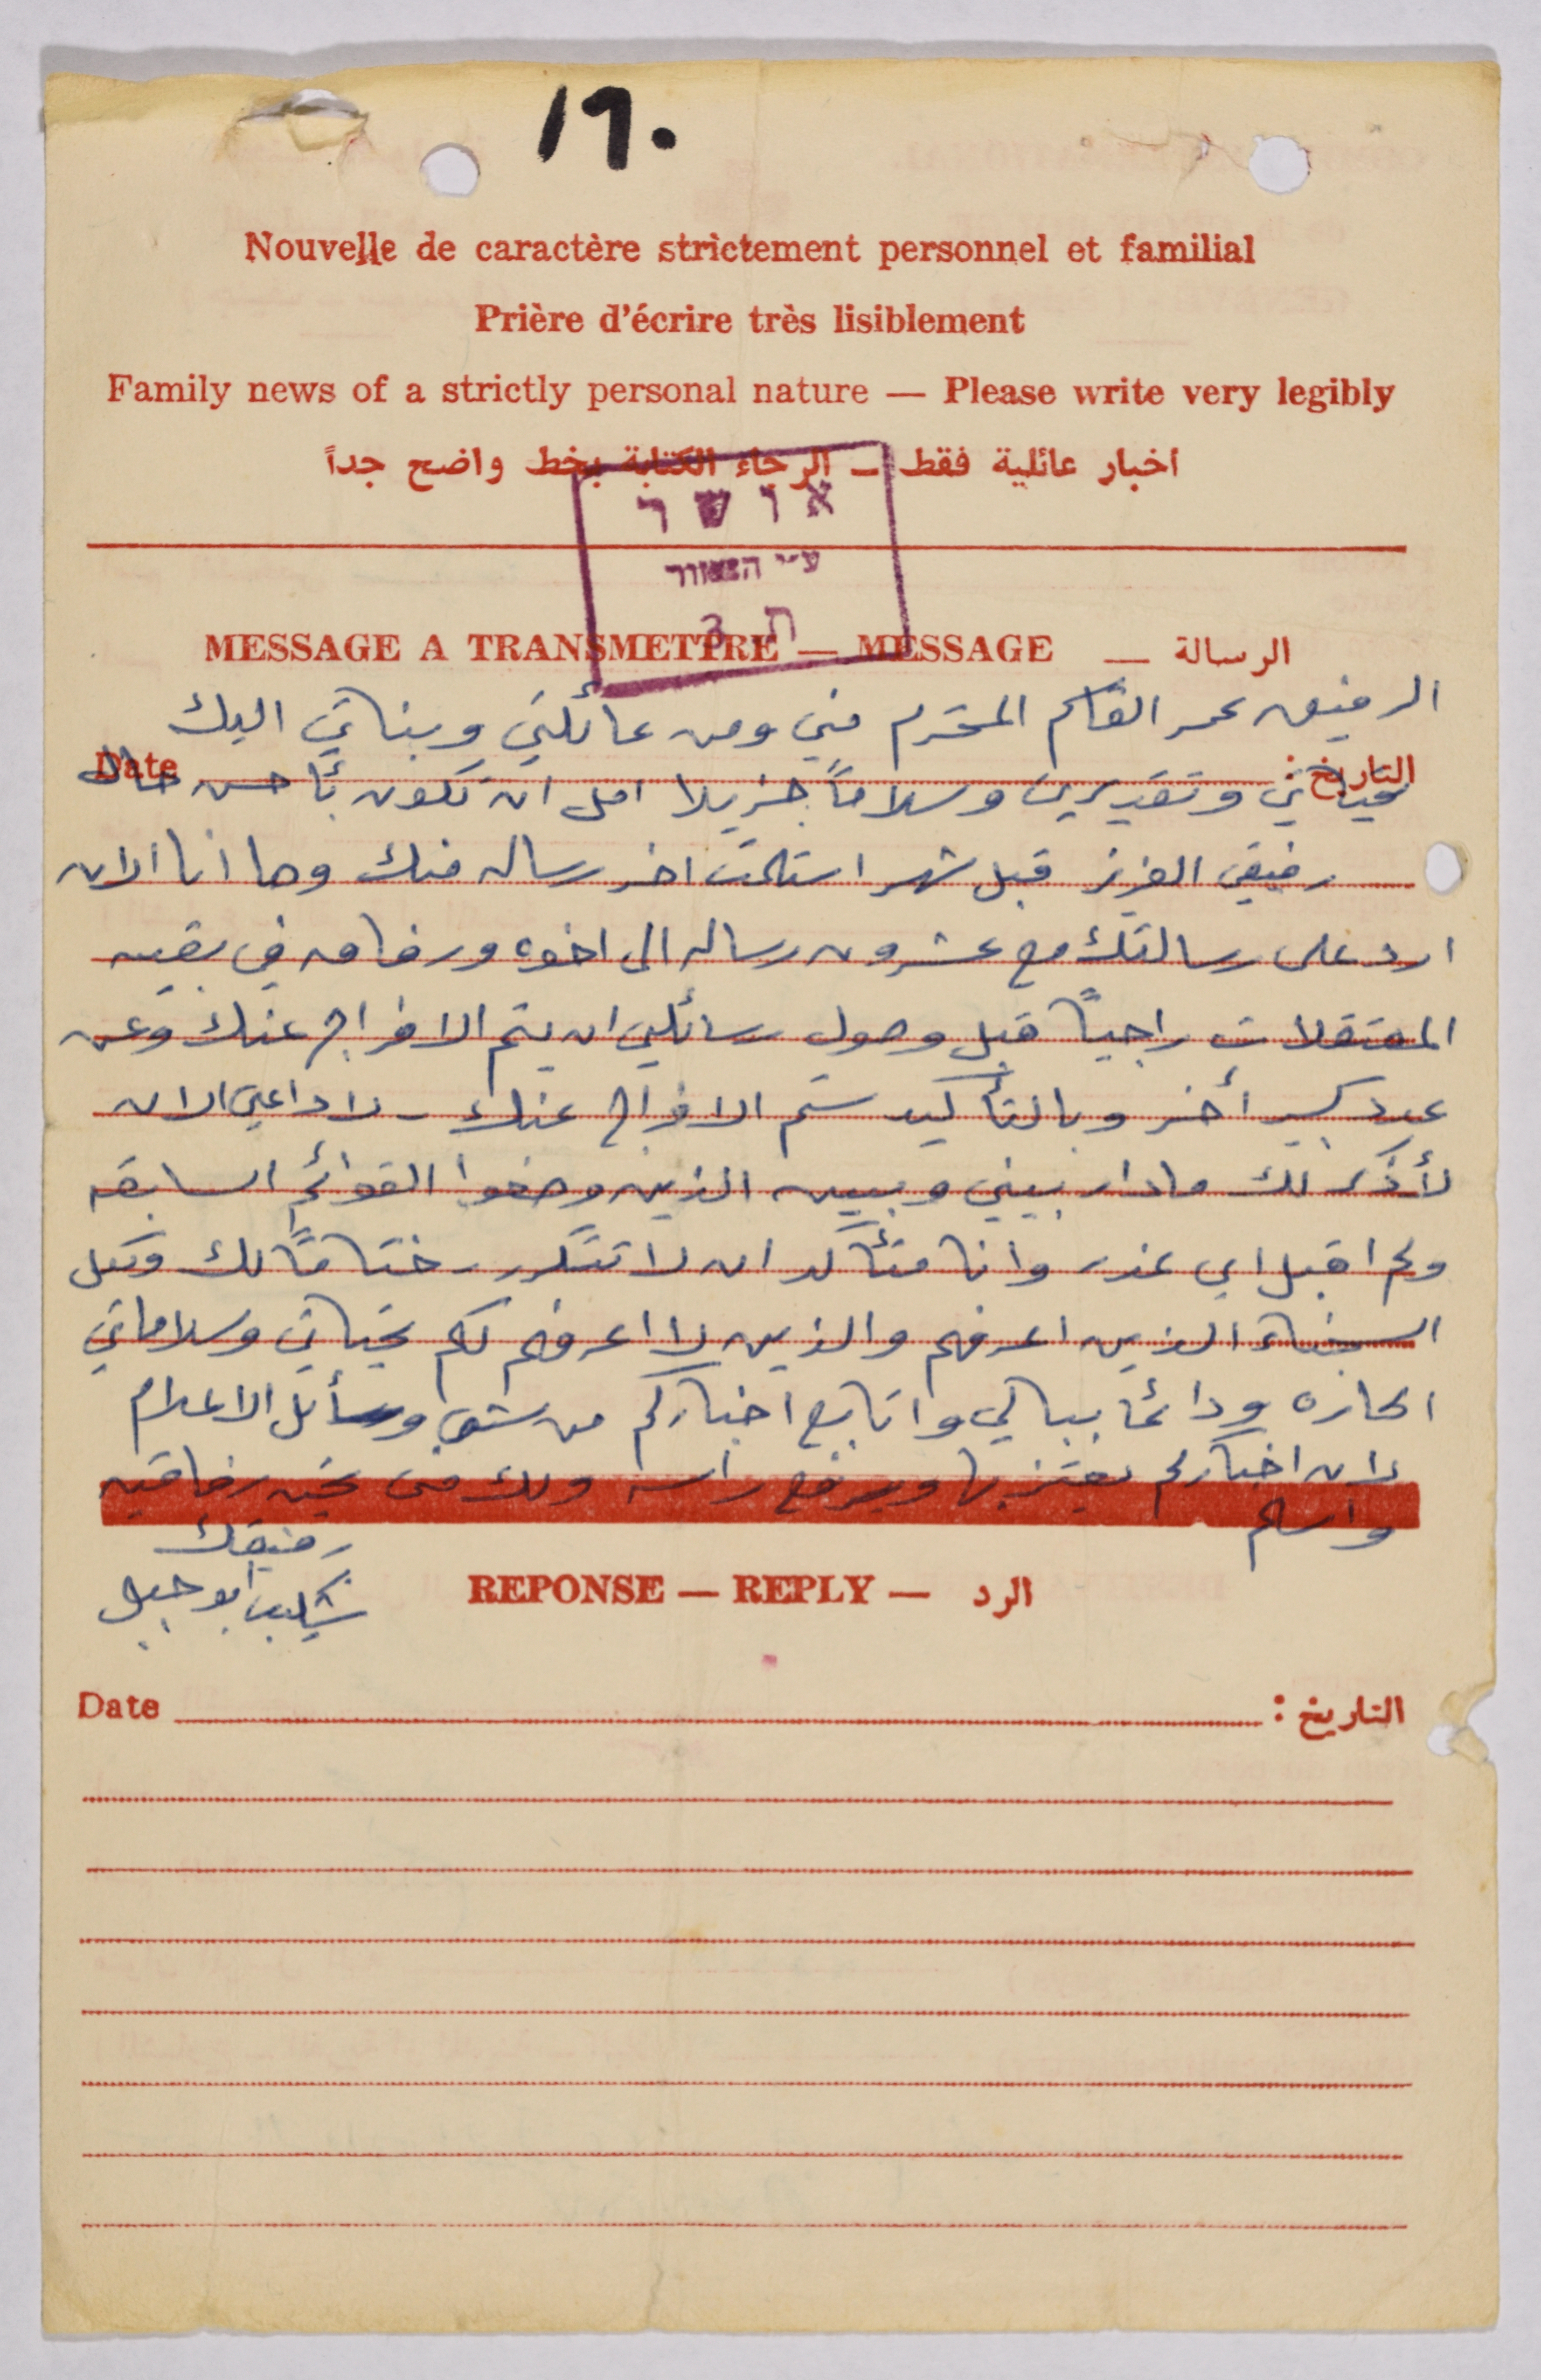 ١٦٠
Nouvelle de caractère strictement personnel et familial
Prière d'écrire très lisiblement
Family news of a strictly personal nature — Please write very legibly
اخبار عائلية فقط — الرجاء الكتابة بخط واضح جداً
אושר
ע״י הצנזור
ת 3
MESSAGE A TRANSMETTRE — MESSAGE — الرسالة
الرفيق عمر القاسم المحترم مني ومن عائلتي وبناتي اليك
Date التاريخ:
تحياتي وتقديري وسلاماً جزيلا امل ان تكون بأحسن حال
رفيقي العزيز قبل شهر استلمت اخر رساله منك وها انا الان
ارد على رسالتك مع عشرون رساله الى اخوه ورفاق في بقيه
المعتقلات راجياً قبل وصول رسائلي ان يتم الافراج عنك وعن
عدد كبير أخر وبالتأكيد ستم الافراج عنك - لا داعي الان
لأذكر لك ما دار بيني وبين الذين وضعوا القوائم السابقه
ولم اقبل اي عذر وانا متأكد ان لا تتكرر ختاماً لك ولكل
السجناء الذين اعرفهم والذين لا اعرفهم لكم تحياتي وسلاماتي
الحاره ودائما ببالي واتابع اخباركم من شتى وسأئل الاعلام
لان اخباركم يعتز بها ويرفع راسه ولك من تحيه رفاقيه
واسلم
رفيقك
شكيب ابو جبل
REPONSE — REPLY — الرد
Date التاريخ: